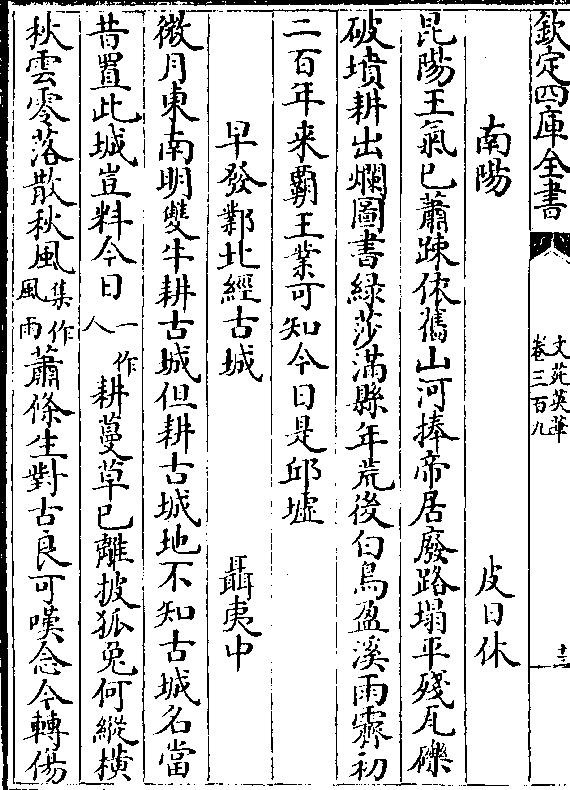 欽定四庫全書
文苑英華
卷三百九
十三
南陽　皮日休
昆陽王氣已蕭疎依舊山河捧帝居廢路塌平殘瓦礫
破墳耕出爛圖書緑莎滿縣年荒後白鳥盈溪雨霽初
二百年来覇王業可知今日是邱墟
早發鄴北經古城　聶夷中
微月東南明雙牛耕古城但耕古城地不知古城名當
昔置此城豈料今日一作人耕蔓草已離披狐兔何縱橫
秋雲零落散秋風集作風雨蕭條生對古良可嘆念今轉傷